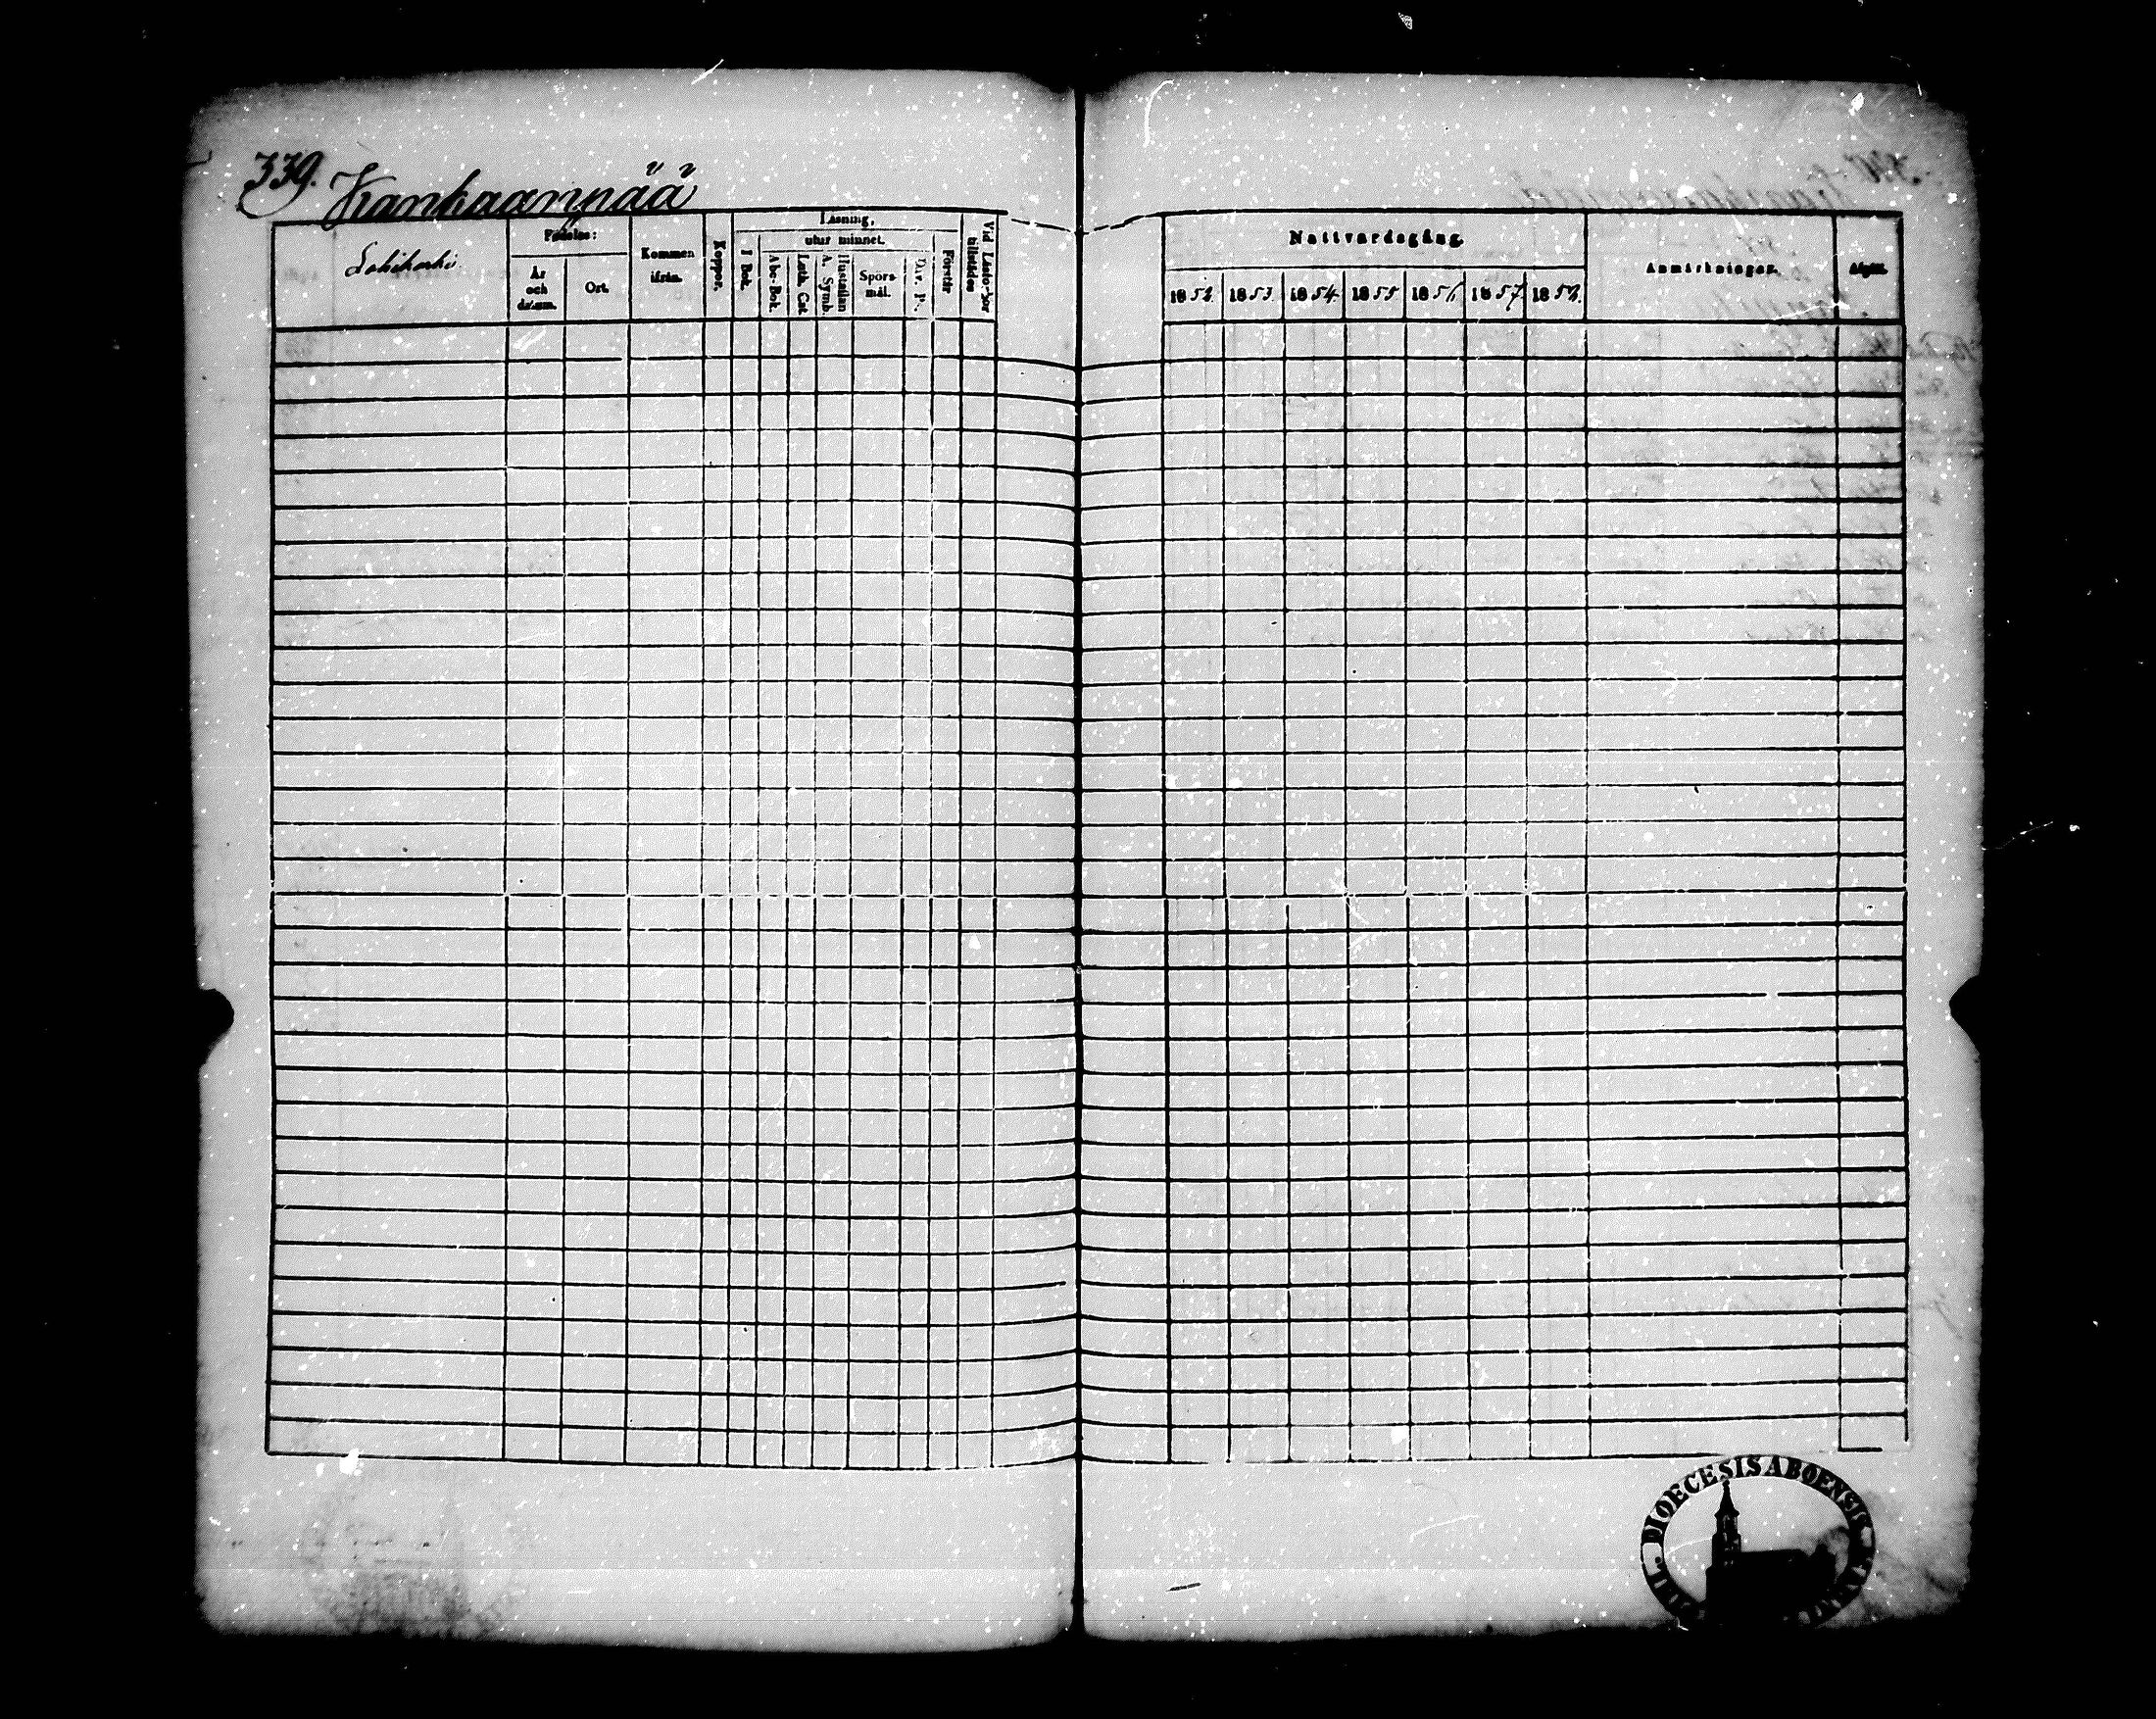 339. Kankaanpää
Lohikoski
Födelse:
År och datum.
Ort.
Kommen ifrån.
Koppor.
Läsning,
I Bok.
utur minnet.
Abc-Bok.
Luth. Cat.
A. Symb.
Hustaflan
Spörsmål.
Dav. P.
Förstår
Vid Läsförhör tillstädes
Nattvardsgång.
1852. 1853. 1854. 1855 1856 1857. 1858.
Anmärkningar.
Afgått.
DIOECESIS ABOENSIS